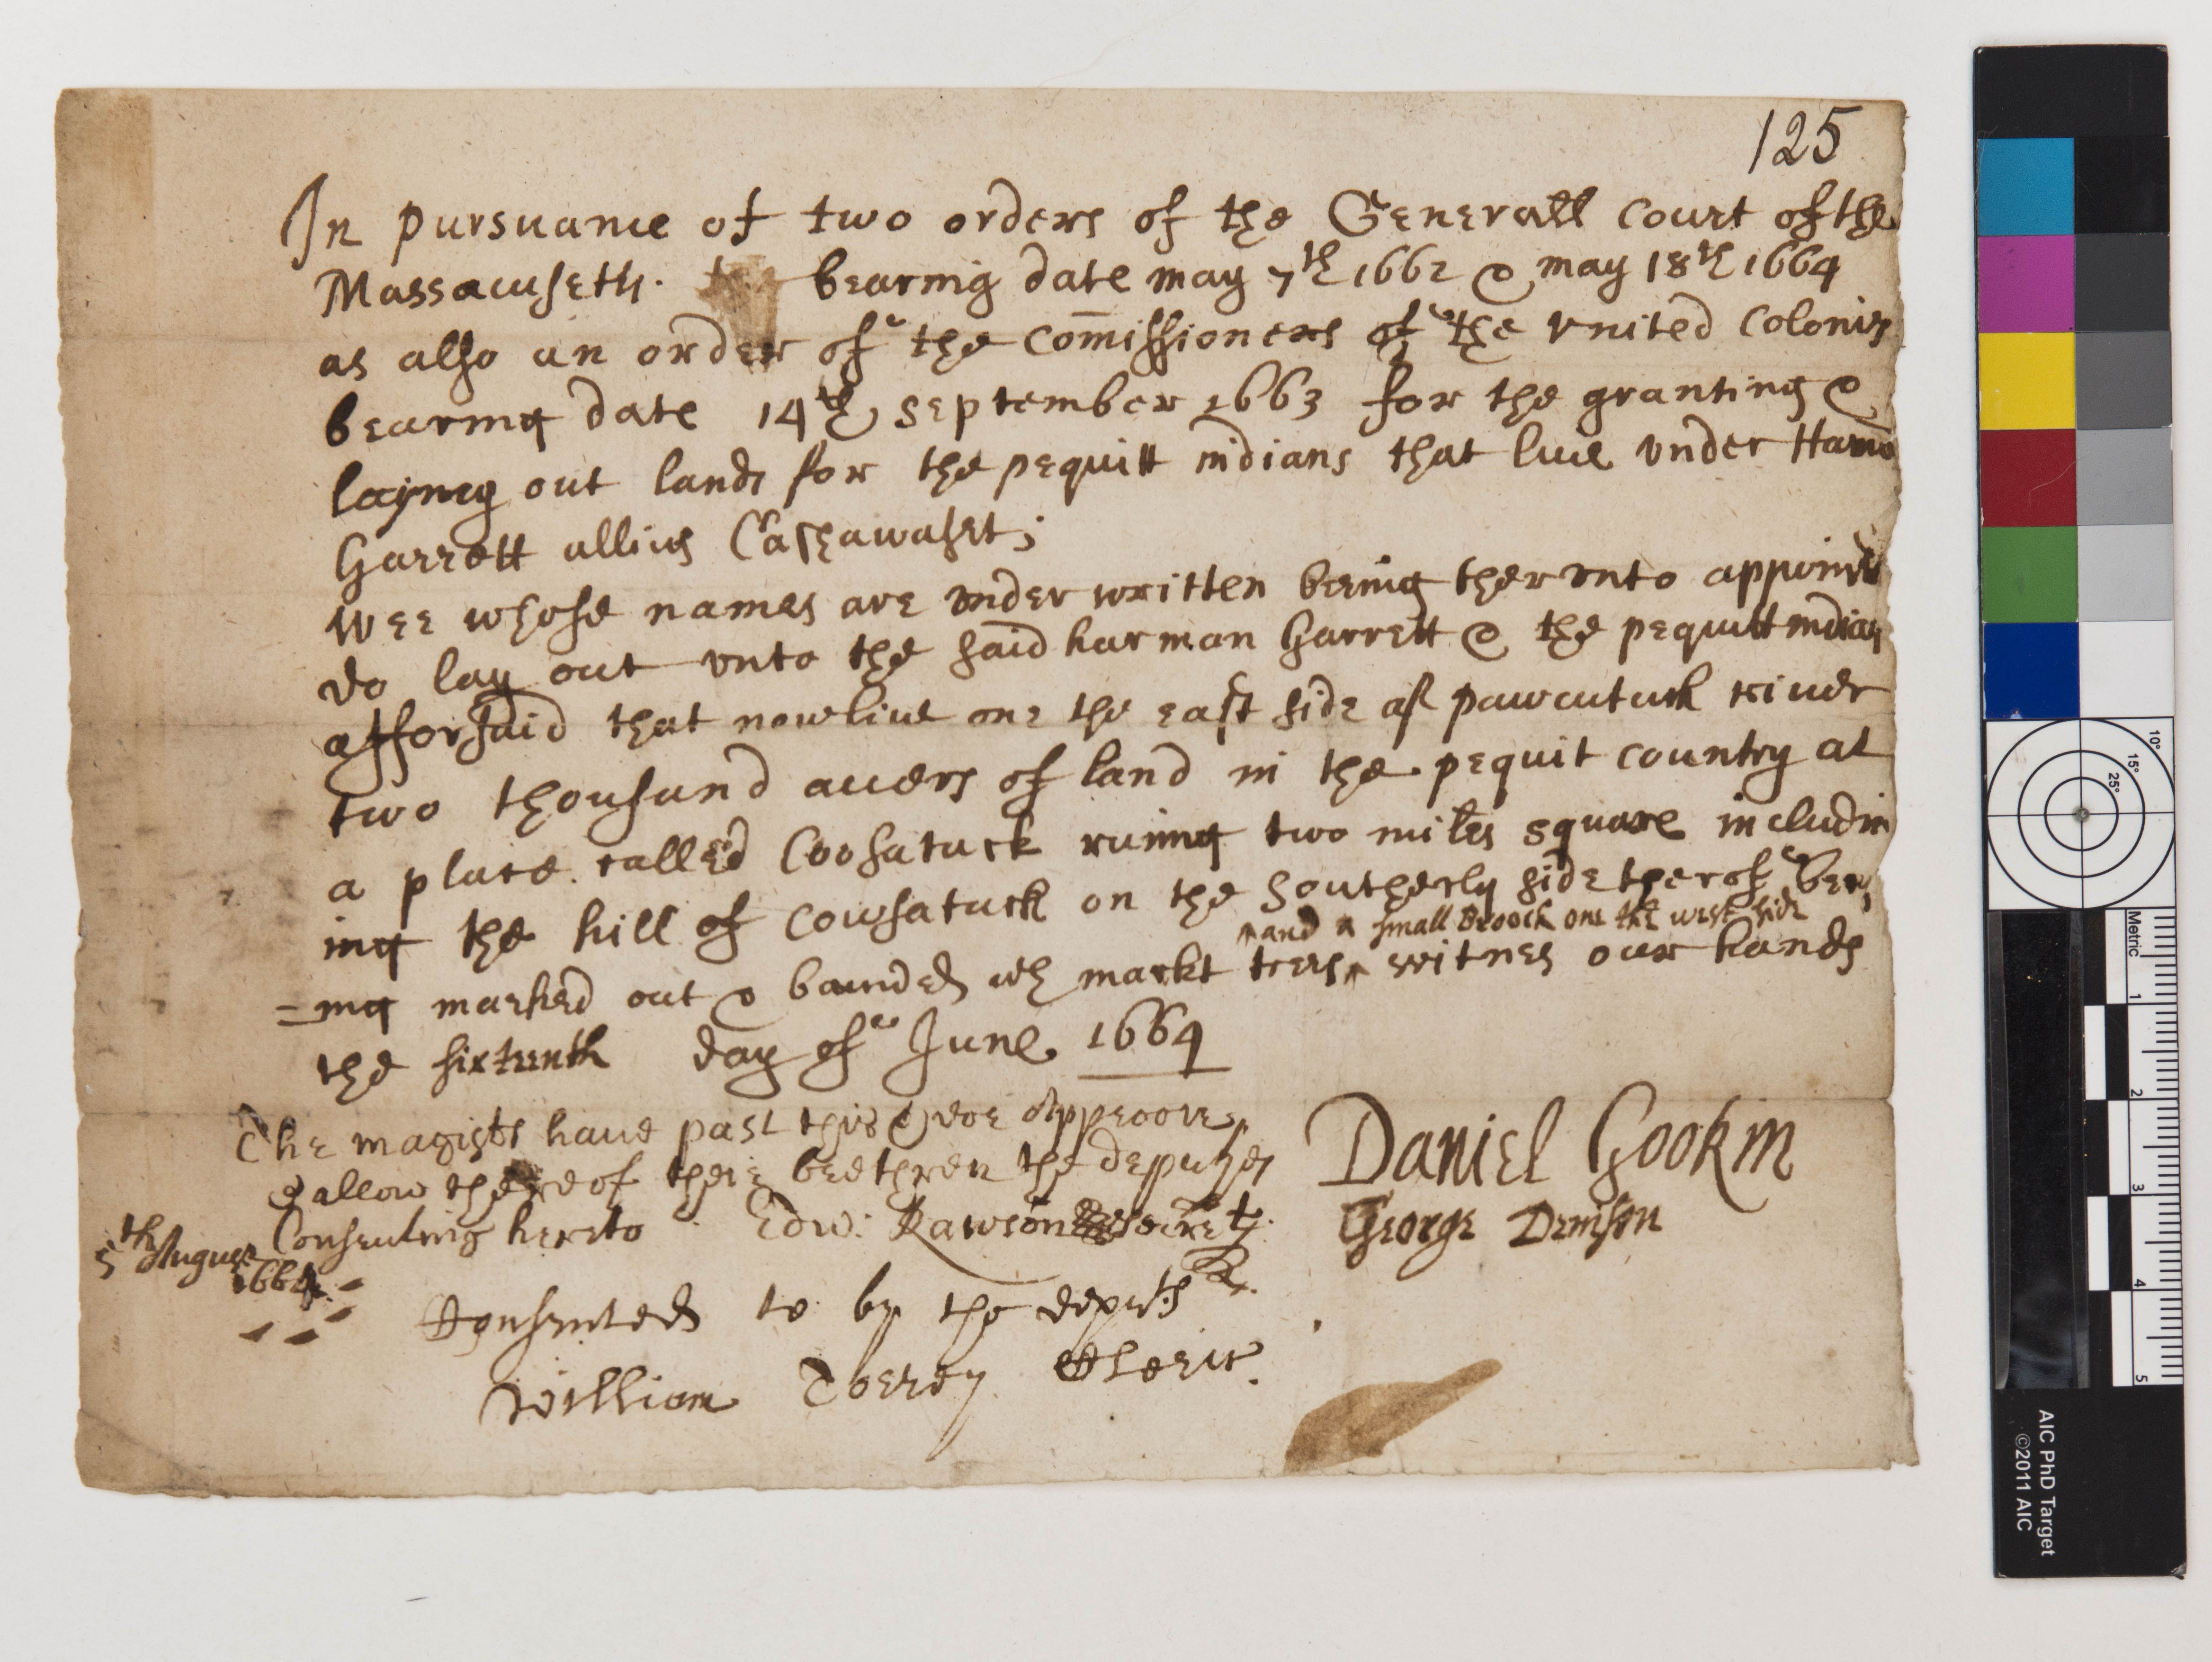 125
In pursuance of two orders of the Generall Court of the
Massacusetts. bearing date may 7th 1662 & may 18th 1664
as also an order of the Comissioners of the vnited Colonis
bearing date 14th September 1663 for the granting &
laying out lands for the pequitt indians that liue vnder Harmo
Garrett allius Casawashet;
Wee whose names are vnder written being ther vnto appointed
do lay out vnto the said harman Garrett & the pequitt indians
afforsaid that now liue one the east side of pawcutuck riuer
two thousand accers of land in the pequit country at
a place called Coosatuck runing two miles square includin
ing the hill of Cowsatuck on the Southerly side therof bei,
^ and a small Broock one the west side
=ing marked out & bounded wth markt trees ^ witnes our hands
the sixteenth day of June 1664
The magists haue past this & doe Approove
& allow thereof their brethren the deputyes
Consenting hereto Edw: Rawson Secrety.
5th August
1664
Daniel Gookin
George Denison
Consented to by the deputs
William Torrey Cleric.
Metric
1
2
3
4
5
10°
15°
25°
AIC PhD Target
©2011 AIC